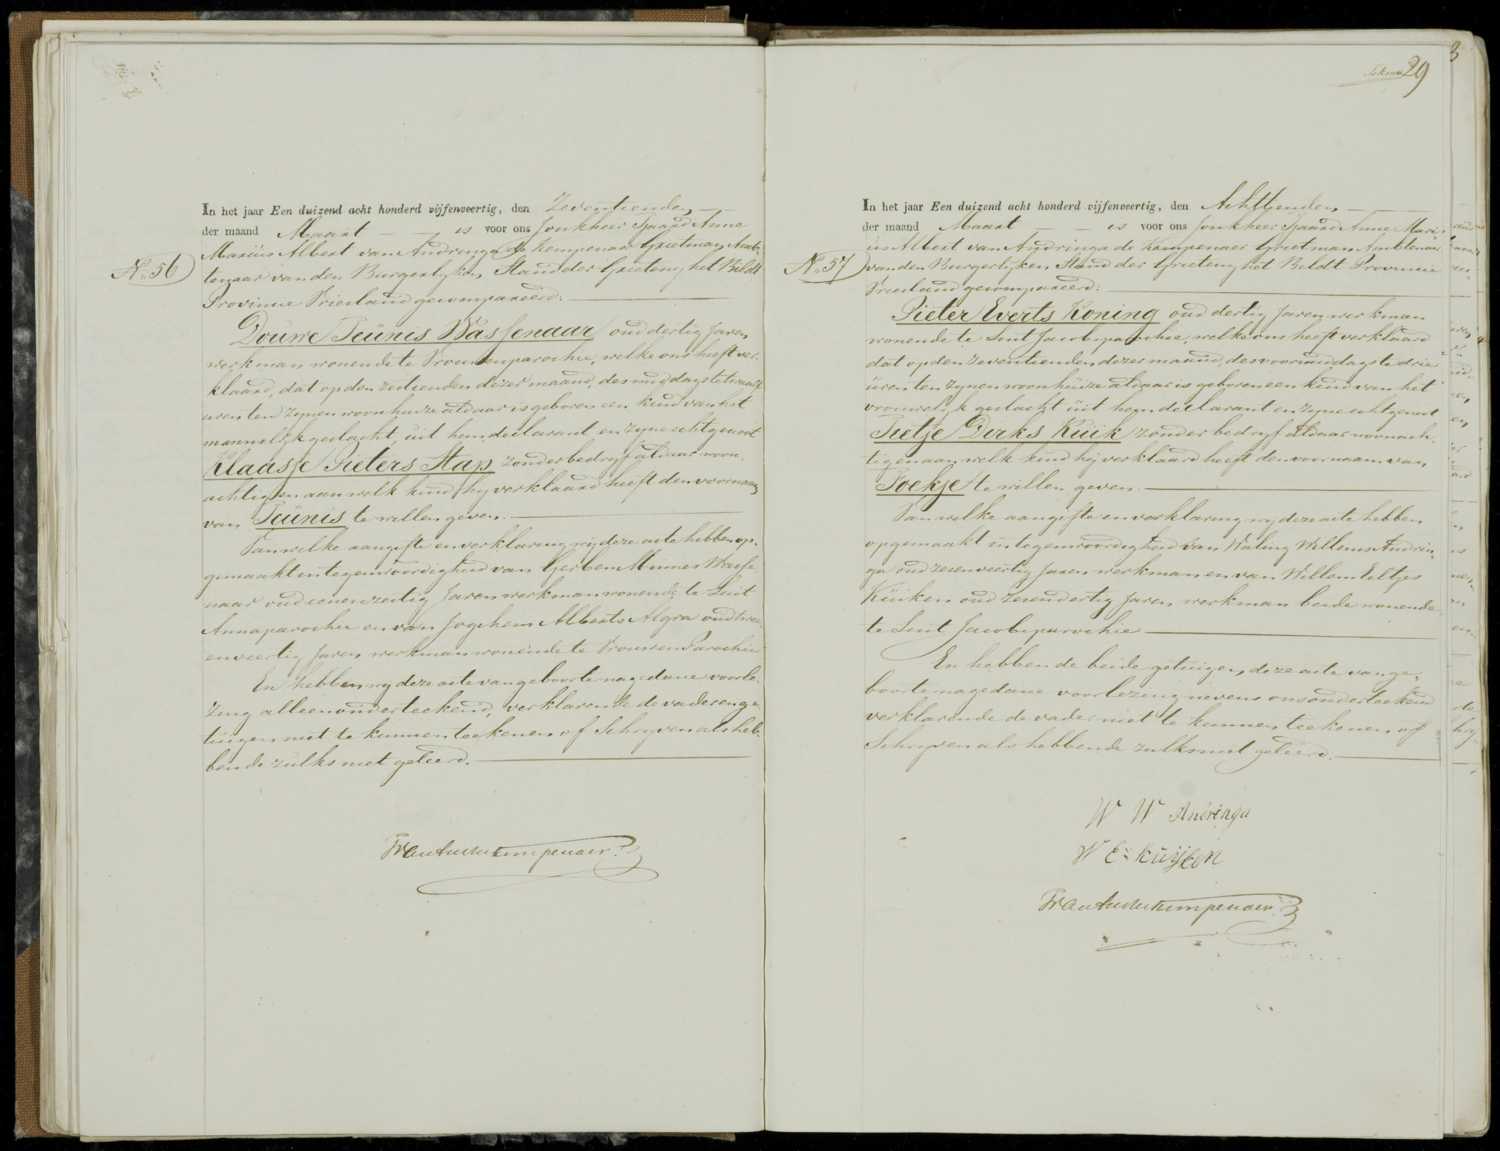 29
In het jaar Een duizend acht honderd vijfenveertig, den Zeventienden
der maand Maart is voor ons Jonkheer Tjaard Anne
Marius Albert van Andringa de Kempenaer Grietman Amb-
tenaar van den Burgerlyken Stand der Grieteny het Bildt
No 56
Provincie Vriesland gecompareerd.
Douwe Teünis Wassenaar oud dertig Jaren
werkman wonende te Vrouwenparochie, welke ons heeft ver-
klaard, dat op den zestienden dezer maand, des middags te twaalf
uren ten zynen woonhuize aldaar is geboren een kind van het
mannelyk geslacht, uit hem declarant en zyne echtgenoot
Klaasje Pieters Stap zonder bedryf aldaar woon-
achtig en aan welk kind hy verklaard heeft den voornaam
van Teünis te willen geven.
Van welke aangifte en verklaring wy deze acte hebben op-
gemaakt in tegenwoordigheid van Gerben Minnes Wasse
naar oud eenenzestig Jaren werkman wonende te Sint
Annaparochie en van Jochem Alberts Algra oud twee
enveertig Jaren werkman wonende te Vrouwen Parochie
En hebben wy deze acte van geboorte na gedane voorle-
zing alleen onderteekend, verklarende de vader en ge-
tuigen niet te kunnen teekenen of Schryven als heb-
bende zulks niet geleerd.
In het jaar Een duizend acht honderd vijfenveertig, den Achttienden
der maand Maart is voor ons Jonkheer Tjaard Anne Mari-
us Albert van Andringa de Kempenaer Grietman Ambtenaar
No 57
van den Burgerlyken Stand der Grieteny het Bildt Provincie
Vriesland gecompareerd.
Pieter Everts Koning oud dertig Jaren werkman
wonende te Sint Jacobiparochie, welke ons heeft verklaard
dat op den zeventienden dezer maand, des voormiddags te drie
uren ten zynen woonhuize aldaar is geboren een kind van het
vrouwelyk geslacht uit hem declarant en zyne echtgenoot
Tietje Dirks Kuik zonder bedryf aldaar woonach-
tig en aan welk kind hy verklaard heeft den voornaam van
Foekje te willen geven.
Van welke aangifte en verklaring wy deze acte hebben
opgemaakt in tegenwoordigheid van Waling Willems Andrin-
ga oud zesenveertig Jaren werkman en van Willem Eeltjes
Kuiken oud zesendertig Jaren werkman beide wonende
te Sint Jacobiparochie
En hebben de beide getuigen, deze acte van ge-
boorte na gedane voorlezing nevens ons onderteekend
verklarende de vader niet te kunnen teekenen of
Schryven als hebbende zulks niet geleerd.
W W Andringa
W E Kuijken